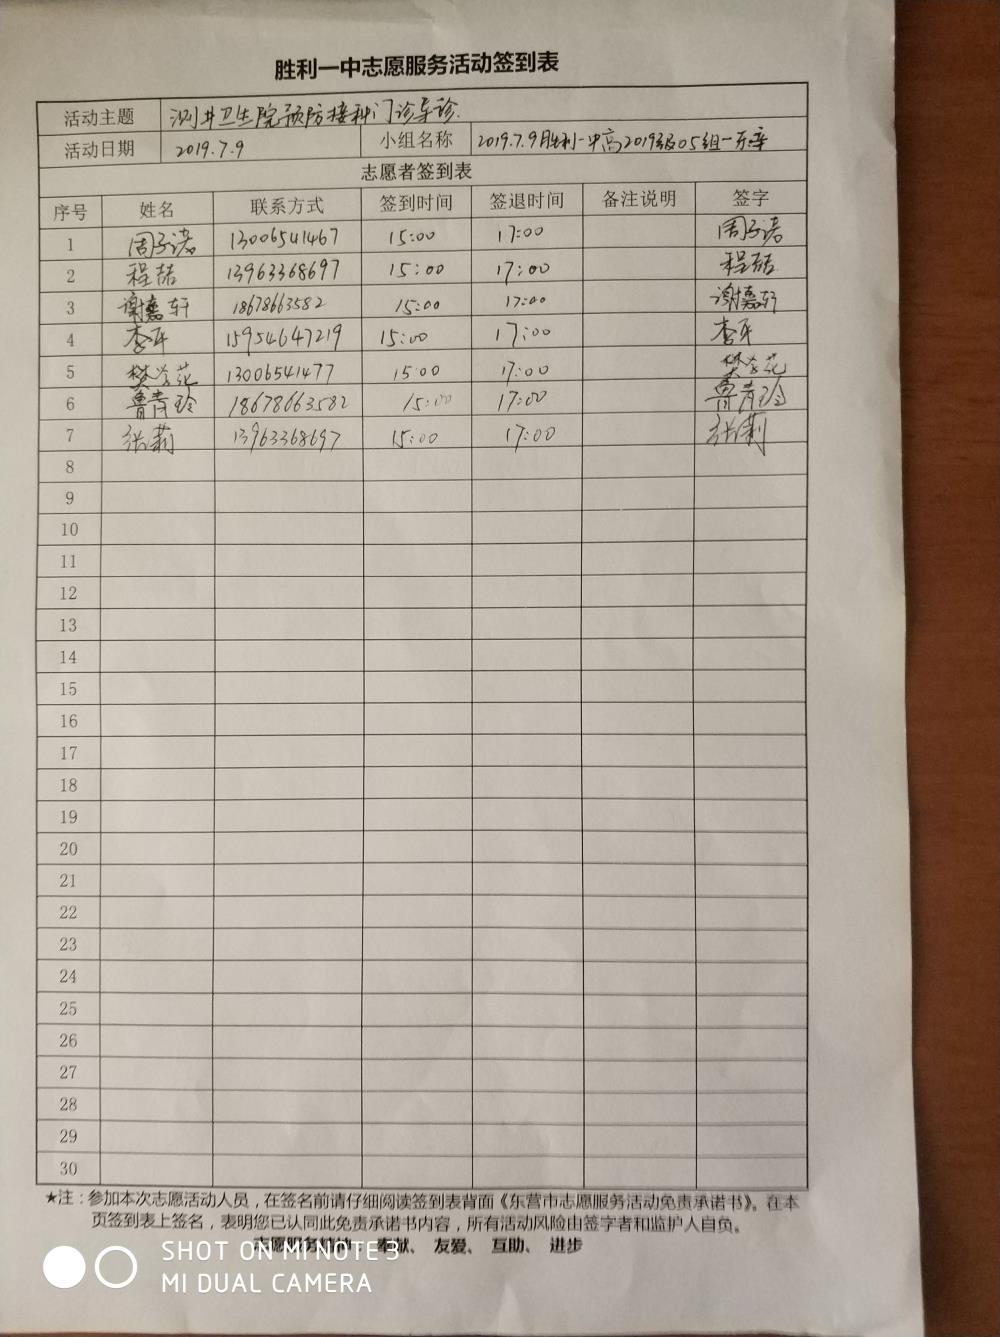 胜利一中志愿服务活动签到表
活动主题 测井卫生院预防接种门诊导诊.
活动日期 2019.7.9 小组名称 2019.7.9胜利一中高2019级05组一
志愿者签到表
序号 姓名 联系方式 签到时间 签退时间 备注说明 签字
1 周子诺 13006541467 15:00 17:00 周子诺
2 程喆 13963368697 15:00 17:00 程喆
3 谢嘉轩 18678663582 15:00 17:00 谢嘉轩
4 李平 15954647219 15:00 17:00 李平
5 樊兰花 13006541477 15:00 17:00 樊兰花
6 鲁青玲 18678663582 15:00 17:00 鲁青玲
7 张莉 13963368697 15:00 17:00 张莉
8
9
10
11
12
13
14
15
16
17
18
19
20
21
22
23
24
25
26
27
28
29
30
★注：参加本次志愿活动人员，在签名前请仔细阅读签到表背面《东营市志愿服务活动免责承诺书》。在本
页签到表上签名，表明您已认同此免责承诺书内容，所有活动风险由签字者和监护人自负。
志愿服务精神：奉献、友爱、互助、进步
SHOT ON MI NOTE 3
MI DUAL CAMERA